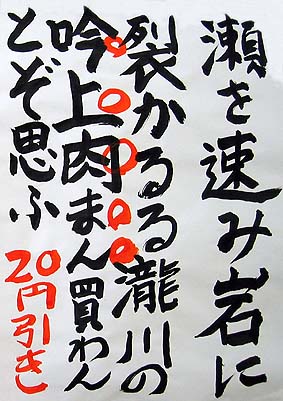 瀬を速み岩に
裂かるる瀧川の
吟上肉まん買わん
とぞ思ふ
20円引き